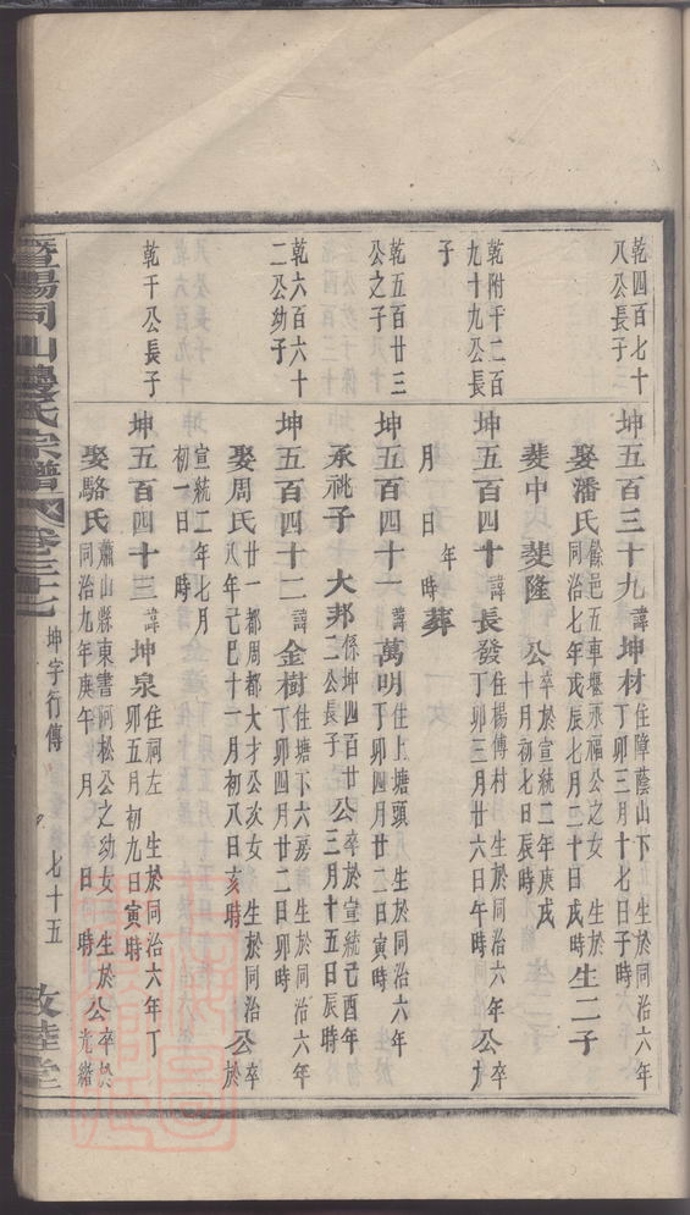 乾四百七十
八公長子
坤五百三十九諱坤材住障蔭山下 生於同治六年
丁卯三月十七日子時
娶潘氏餘邑五車堰永福公之女 生於
同治七年戊辰七月二十日戌時生二子
斐中 斐隆 公卒於宣統二年庚戌
十月初七日辰時
乾附千二百
九十九公長
子
坤五百四十諱長發住楊傅村 生於同治六年
丁卯三月廿六日午時公卒
於 年
月 日 時葬
乾五百廿三
公之子
坤五百四十一諱萬明住上塘頭 生於同治六年
丁卯四月廿二日寅時
承祧子 大邦係坤四百廿
二公長子公卒於宣統己酉年
三月十五日辰時
乾六百六十
二公幼子
坤五百四十二諱金樹住塘下六房 生於同治六年
丁卯四月廿二日卯時
娶周氏廿一都周都大才公次女 生於同治
八年己巳十一月初八日亥時公卒
於
宣統二年七月
初一日 時
乾千公長子
坤五百四十三諱坤泉住祠左 生於同治六年丁
卯五月初九日寅時
娶駱氏蕭山縣東書阿松公之幼女 生於
同治九年庚午 月 日 時公卒於
光緒
暨陽同山邊氏宗譜 卷三十七 坤字行傳 七十五 敦睦堂